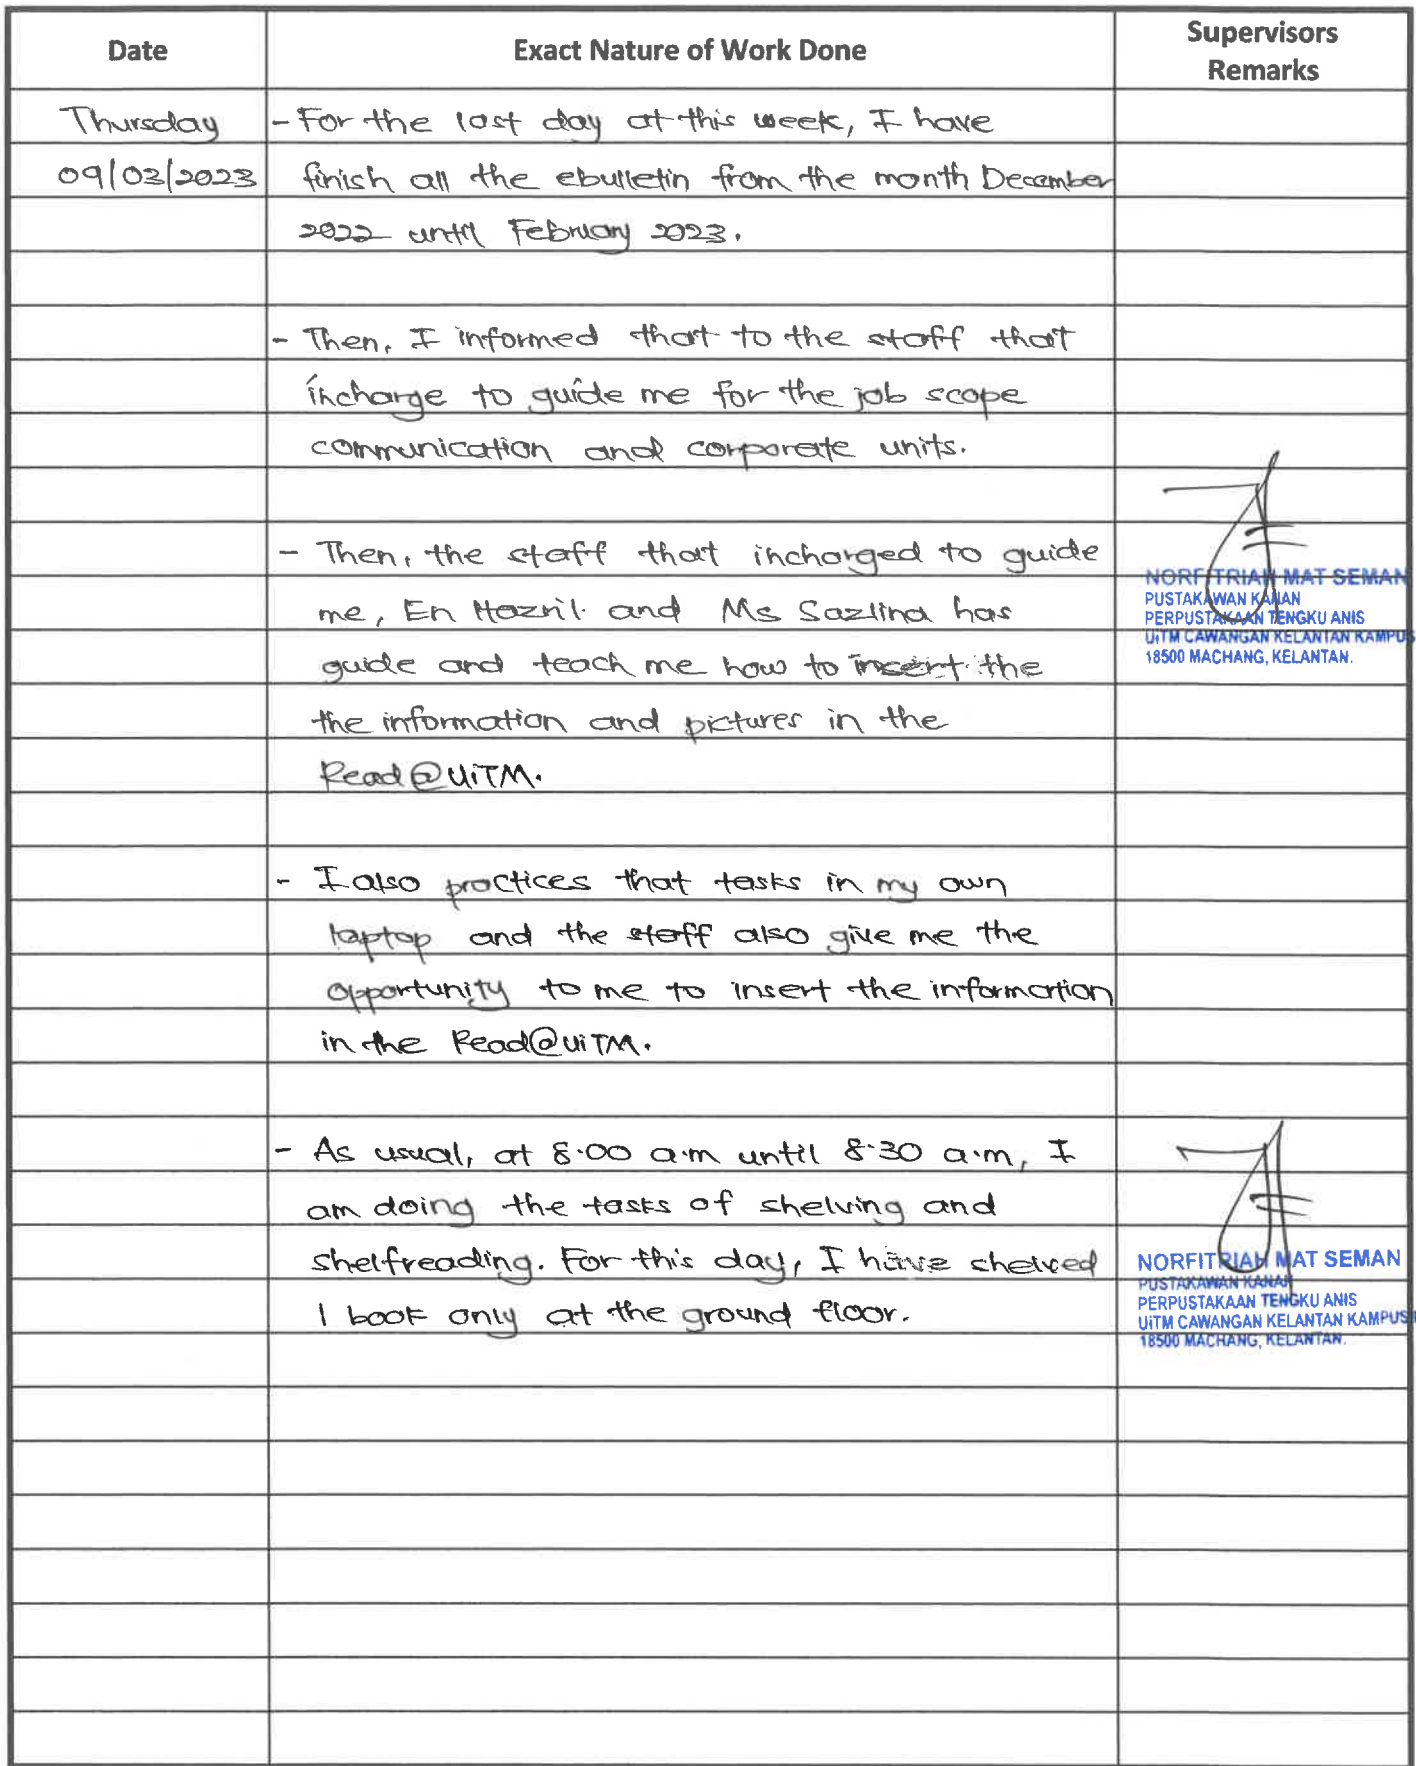 Date
Exact Nature of Work Done
Supervisors
Remarks
Thursday
09/03/2023
- For the last day at this week, I have
finish all the ebulletin from the month December
2022 until February 2023.
- Then, I informed that to the staff that
incharge to guide me for the job scope
communication and corporate units.
- Then, the staff that incharged to guide
me, En Hazril and Ms Sazlina has
guide and teach me how to insert the
the information and pictures in the
Read@UiTM.
NORFITRIAH MAT SEMAN
PUSTAKAWAN KANAN
PERPUSTAKAAN TENGKU ANIS
UiTM CAWANGAN KELANTAN KAMPUS
18500 MACHANG, KELANTAN.
- I also practices that tasks in my own
laptop and the staff also give me the
opportunity to me to insert the information
in the Read@UiTM.
- As usual, at 8.00 a.m until 8.30 a.m, I
am doing the tasks of shelving and
shelfreading. For this day, I have shelved
1 book only at the ground floor.
NORFITRIAH MAT SEMAN
PUSTAKAWAN KANAN
PERPUSTAKAAN TENGKU ANIS
UiTM CAWANGAN KELANTAN KAMPUS
18500 MACHANG, KELANTAN.